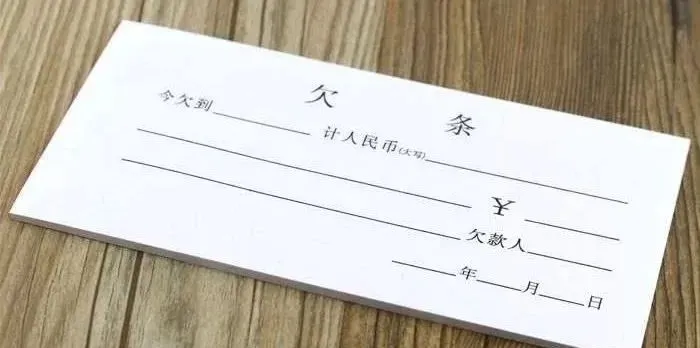 欠 条
今欠到________ 计人民币(大写)________________
________________________ ¥________
________________________ 欠款人________
______年____月____日